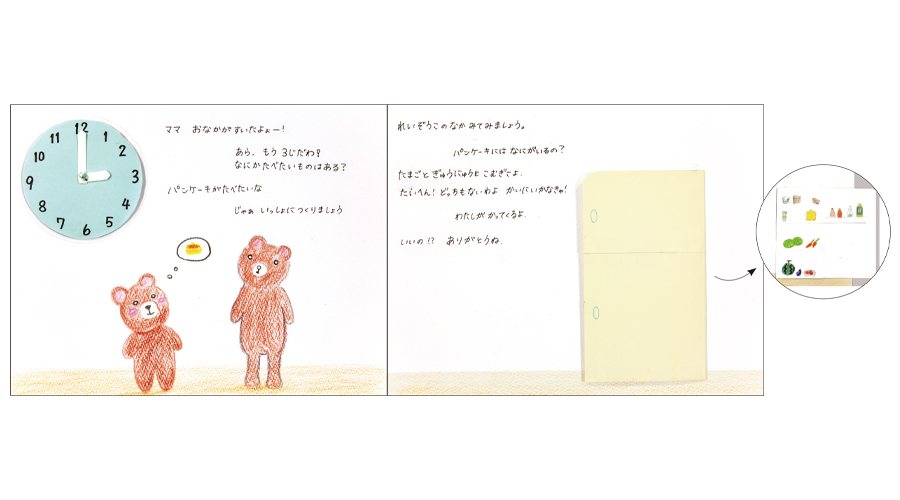 12
1
2
3
4
5
6
7
8
9
10
11
ママ おなかがすいたよぉー!
あら、もう 3じだわ?
なにかたべたいものはある?
パンケーキがたべたいな
じゃぁ いっしょにつくりましょう
れいぞうこのなか みてみましょう。
パンケーキには なにがいるの?
たまごと ぎゅうにゅうと こむぎこよ.
たいへん! どっちもないわよ かいにいかなきゃ!
わたしが かってくるよ.
いいの!? ありがとうね.